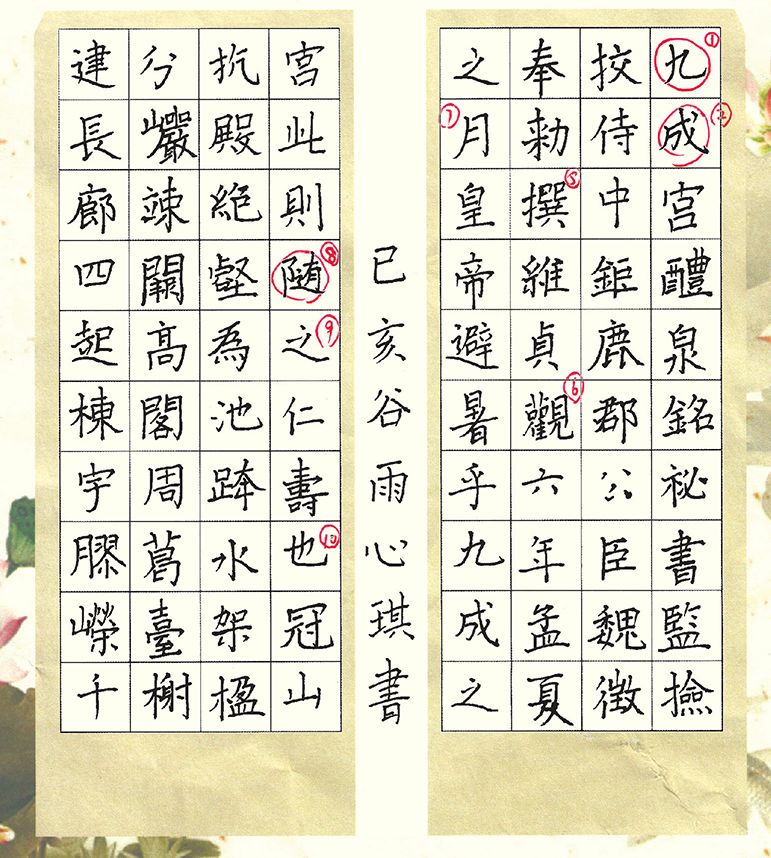 九成宮醴泉銘祕書監撿
挍侍中鉅鹿郡公臣魏徵
奉勅撰維貞觀六年孟夏
之月皇帝避暑乎九成之
己亥谷雨心琪書
宮此則随之仁壽也冠山
抗殿絕壑為池跨水架楹
分巖竦闕高閣周葛臺榭
建長廊四起棟宇膠嶸千
1
2
5
6
7
8
9
10